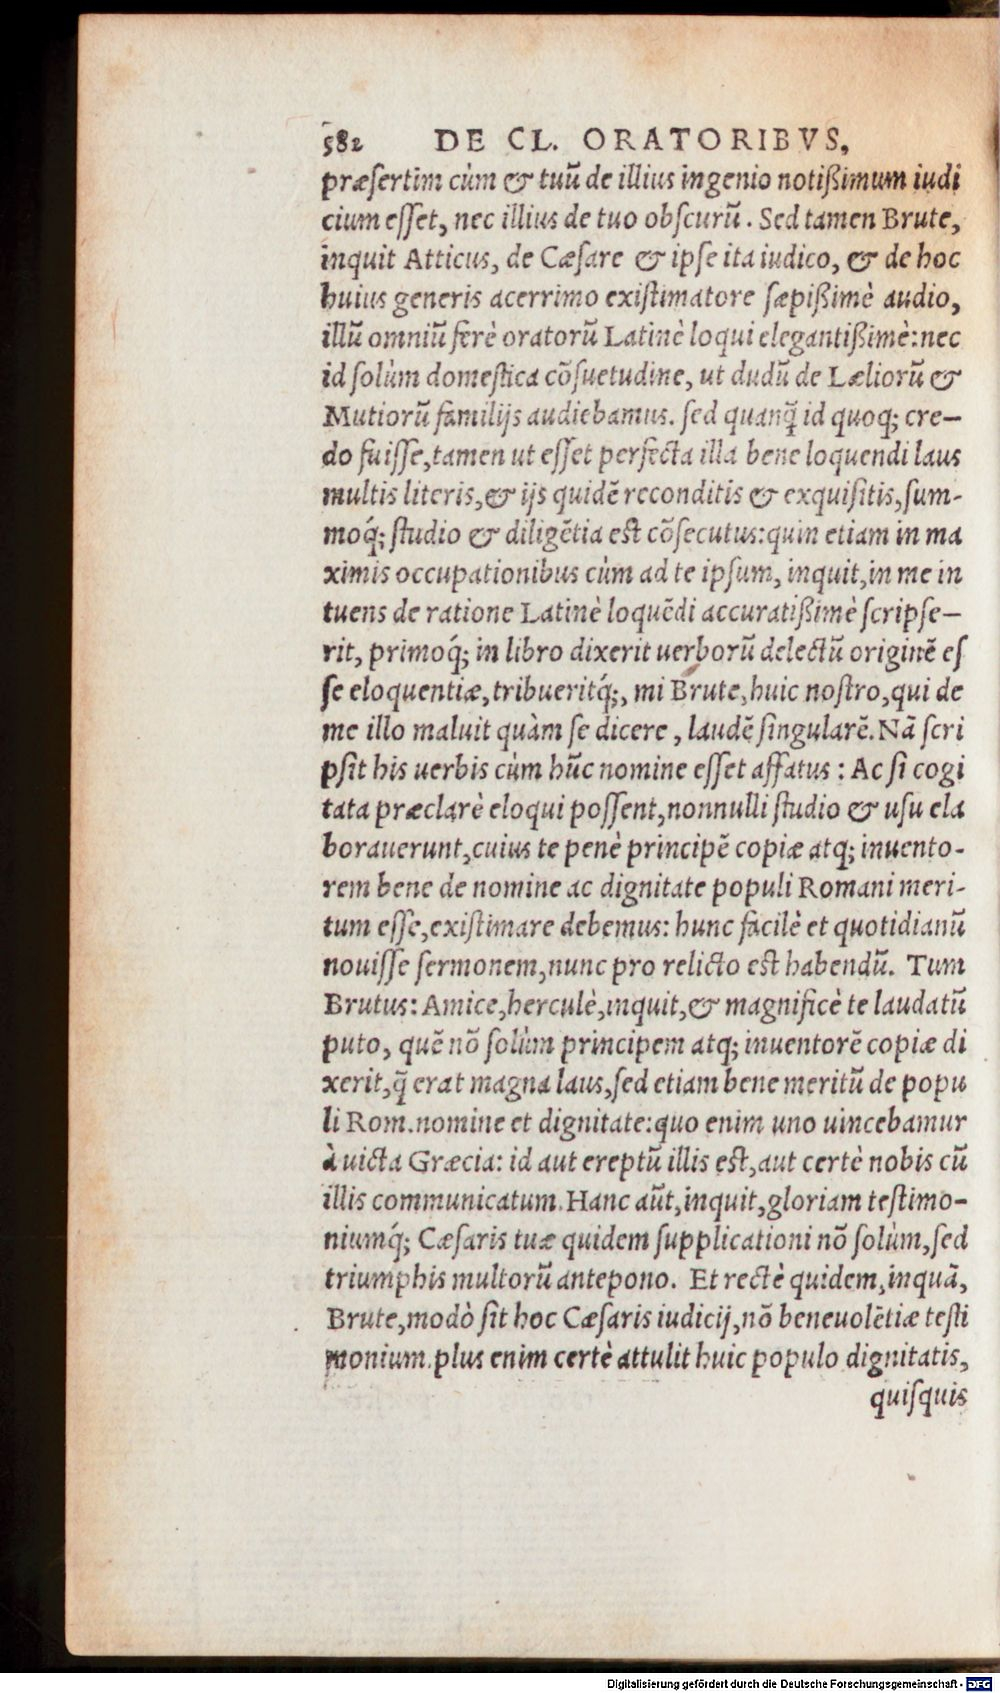 582 DE CL. ORATORIBVS,
præsertim cùm & tuũ de illius ingenio notißimum iudi
cium esset, nec illius de tuo obscurũ. Sed tamen Brute,
inquit Atticus, de Cæsare & ipse ita iudico, & de hoc
huius generis acerrimo existimatore sæpißimè audio,
illũ omniũ ferè oratorũ Latinè loqui elegantißimè: nec
id solùm domestica cõsuetudine, ut dudũ de Læliorũ &
Mutiorũ familijs audiebamus. sed quanq̃ id quoq; cre-
do fuisse, tamen ut esset perfecta illa bene loquendi laus
multis literis, & ijs quidẽ reconditis & exquisitis, sum-
moq́; studio & diligẽtia est cõsecutus: quin etiam in ma
ximis occupationibus cùm ad te ipsum, inquit, in me in
tuens de ratione Latinè loquẽdi accuratißimè scripse-
rit, primoq́; in libro dixerit uerborũ delectũ originẽ es
se eloquentiæ, tribueritq́;, mi Brute, huic nostro, qui de
me illo maluit quàm se dicere, laudẽ singularẽ. Nã scri
psit his uerbis cùm hũc nomine esset affatus: Ac si cogi
tata præclarè eloqui possent, nonnulli studio & usu ela
borauerunt, cuius te penè principẽ copiæ atq; inuento-
rem bene de nomine ac dignitate populi Romani meri-
tum esse, existimare debemus: hunc facilè et quotidianũ
nouisse sermonem, nunc pro relicto est habendũ. Tum
Brutus: Amice, herculè, inquit, & magnificè te laudatũ
puto, quẽ nõ solùm principem atq; inuentorẽ copiæ di
xerit, q̃ erat magna laus, sed etiam bene meritũ de popu
li Rom. nomine et dignitate: quo enim uno uincebamur
à uicta Græcia: id aut ereptũ illis est, aut certè nobis cũ
illis communicatum. Hanc aũt, inquit, gloriam testimo-
niumq́; Cæsaris tuæ quidem supplicationi nõ solùm, sed
triumphis multorũ antepono. Et rectè quidem, inquã,
Brute, modò sit hoc Cæsaris iudicij, nõ beneuolẽtiæ testi
monium. plus enim certè attulit huic populo dignitatis,
quisquis
Digitalisierung gefördert durch die Deutsche Forschungsgemeinschaft - DFG